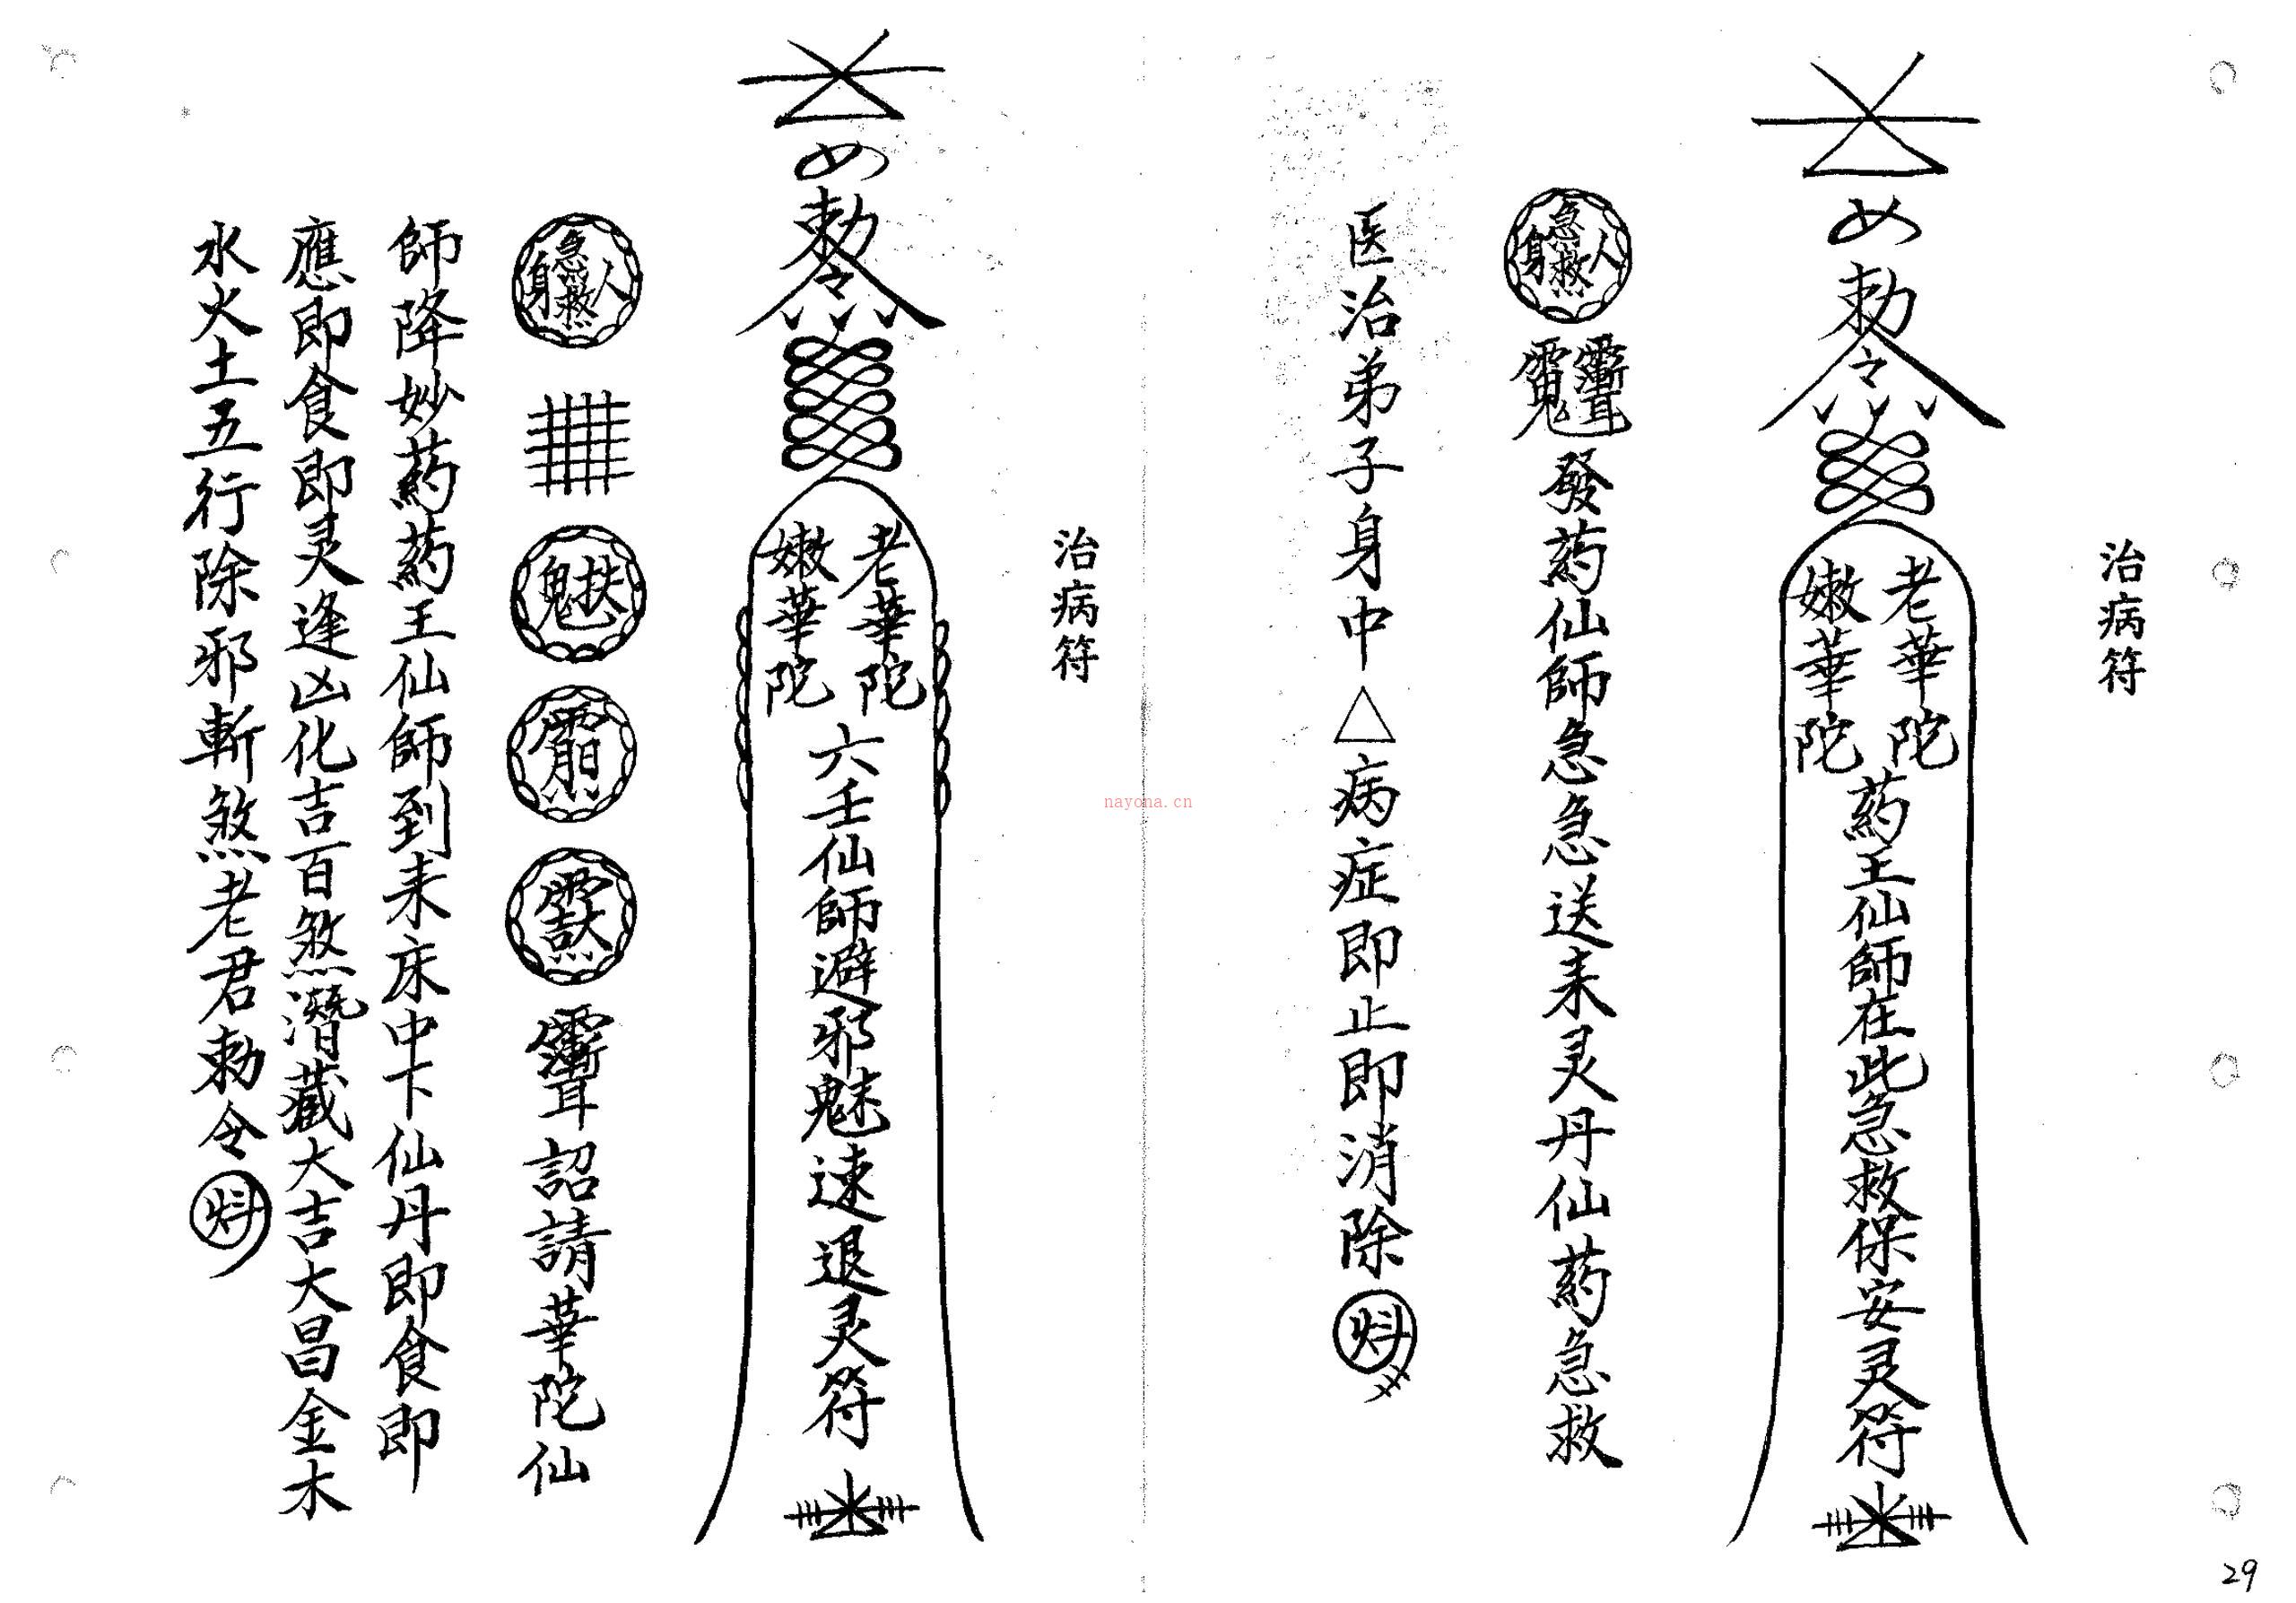 治病符
勅令
老華陀
嫩華陀
药王仙師在此急救保安灵符
急救人身
發药仙師急急送来灵丹仙药急救
医治弟子身中△病症即止即消除
治病符
勅令
老華陀
嫩華陀
六壬仙師避邪魅速退灵符
急救人身
詔請華陀仙
師降妙药药王仙師到来床中下仙丹即食即
應即食即灵逢凶化吉百煞潛藏大吉大昌金木
水火土五行除邪斬煞老君勅令
nayona.cn
29